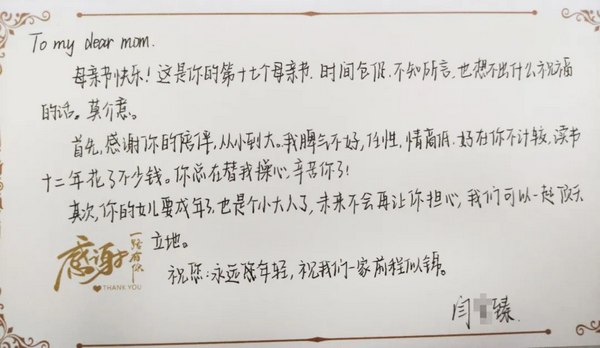 To my dear mom.
母亲节快乐！这是你的第十七个母亲节，时间仓促，不知所言，也想不出什么祝福
的话。莫介意。
首先，感谢你的陪伴，从小到大。我脾气不好，任性，情商低，好在你不计较，读书
十二年花了不少钱。你总在替我操心，辛苦你了！
其次，你的女儿要成年了，也是个小大人了，未来不会再让你担心，我们可以一起顶天
立地。
祝您：永远年轻，祝我们一家前程似锦。
感谢 一路有你
THANK YOU
闫 臻